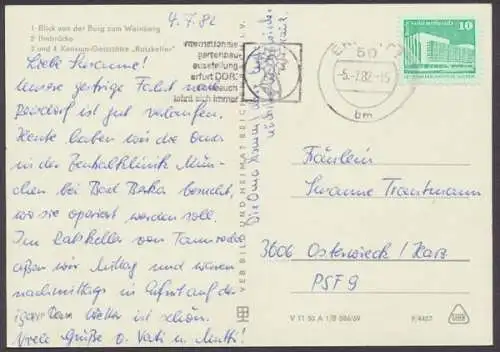 1 Blick von der Burg zum Weinberg
2 Ilmbrücke
3 und 4 Konsum-Gaststätte „Ratskeller"
4.7.82
Liebe Susanne!
Unsere gestrige Fahrt nach
ist gut verlaufen.
Heute haben wir die Oma
in der Zentralklinik Mün-
chen bei Bad Berka besucht,
wo sie operiert werden soll.
Im Ratskeller von Tannroda
aßen wir Mittag und waren
nachmittags in Erfurt auf der
iga. Das Wetter ist schön.
Viele Grüße v. Vati u. Mutti!
Die Oma kommt
VEB BILD UND HEIMAT REICHENBACH I. V.
internationale
gartenbau
ausstellung
erfurt DDR
besuch
lohnt sich immer
50
-5.-7.82.-15
bm
10
Fräulein
Susanne Trautmann
3606 Osterwieck / Harz
PSF 9
V 11 50 A 1/B 586/69